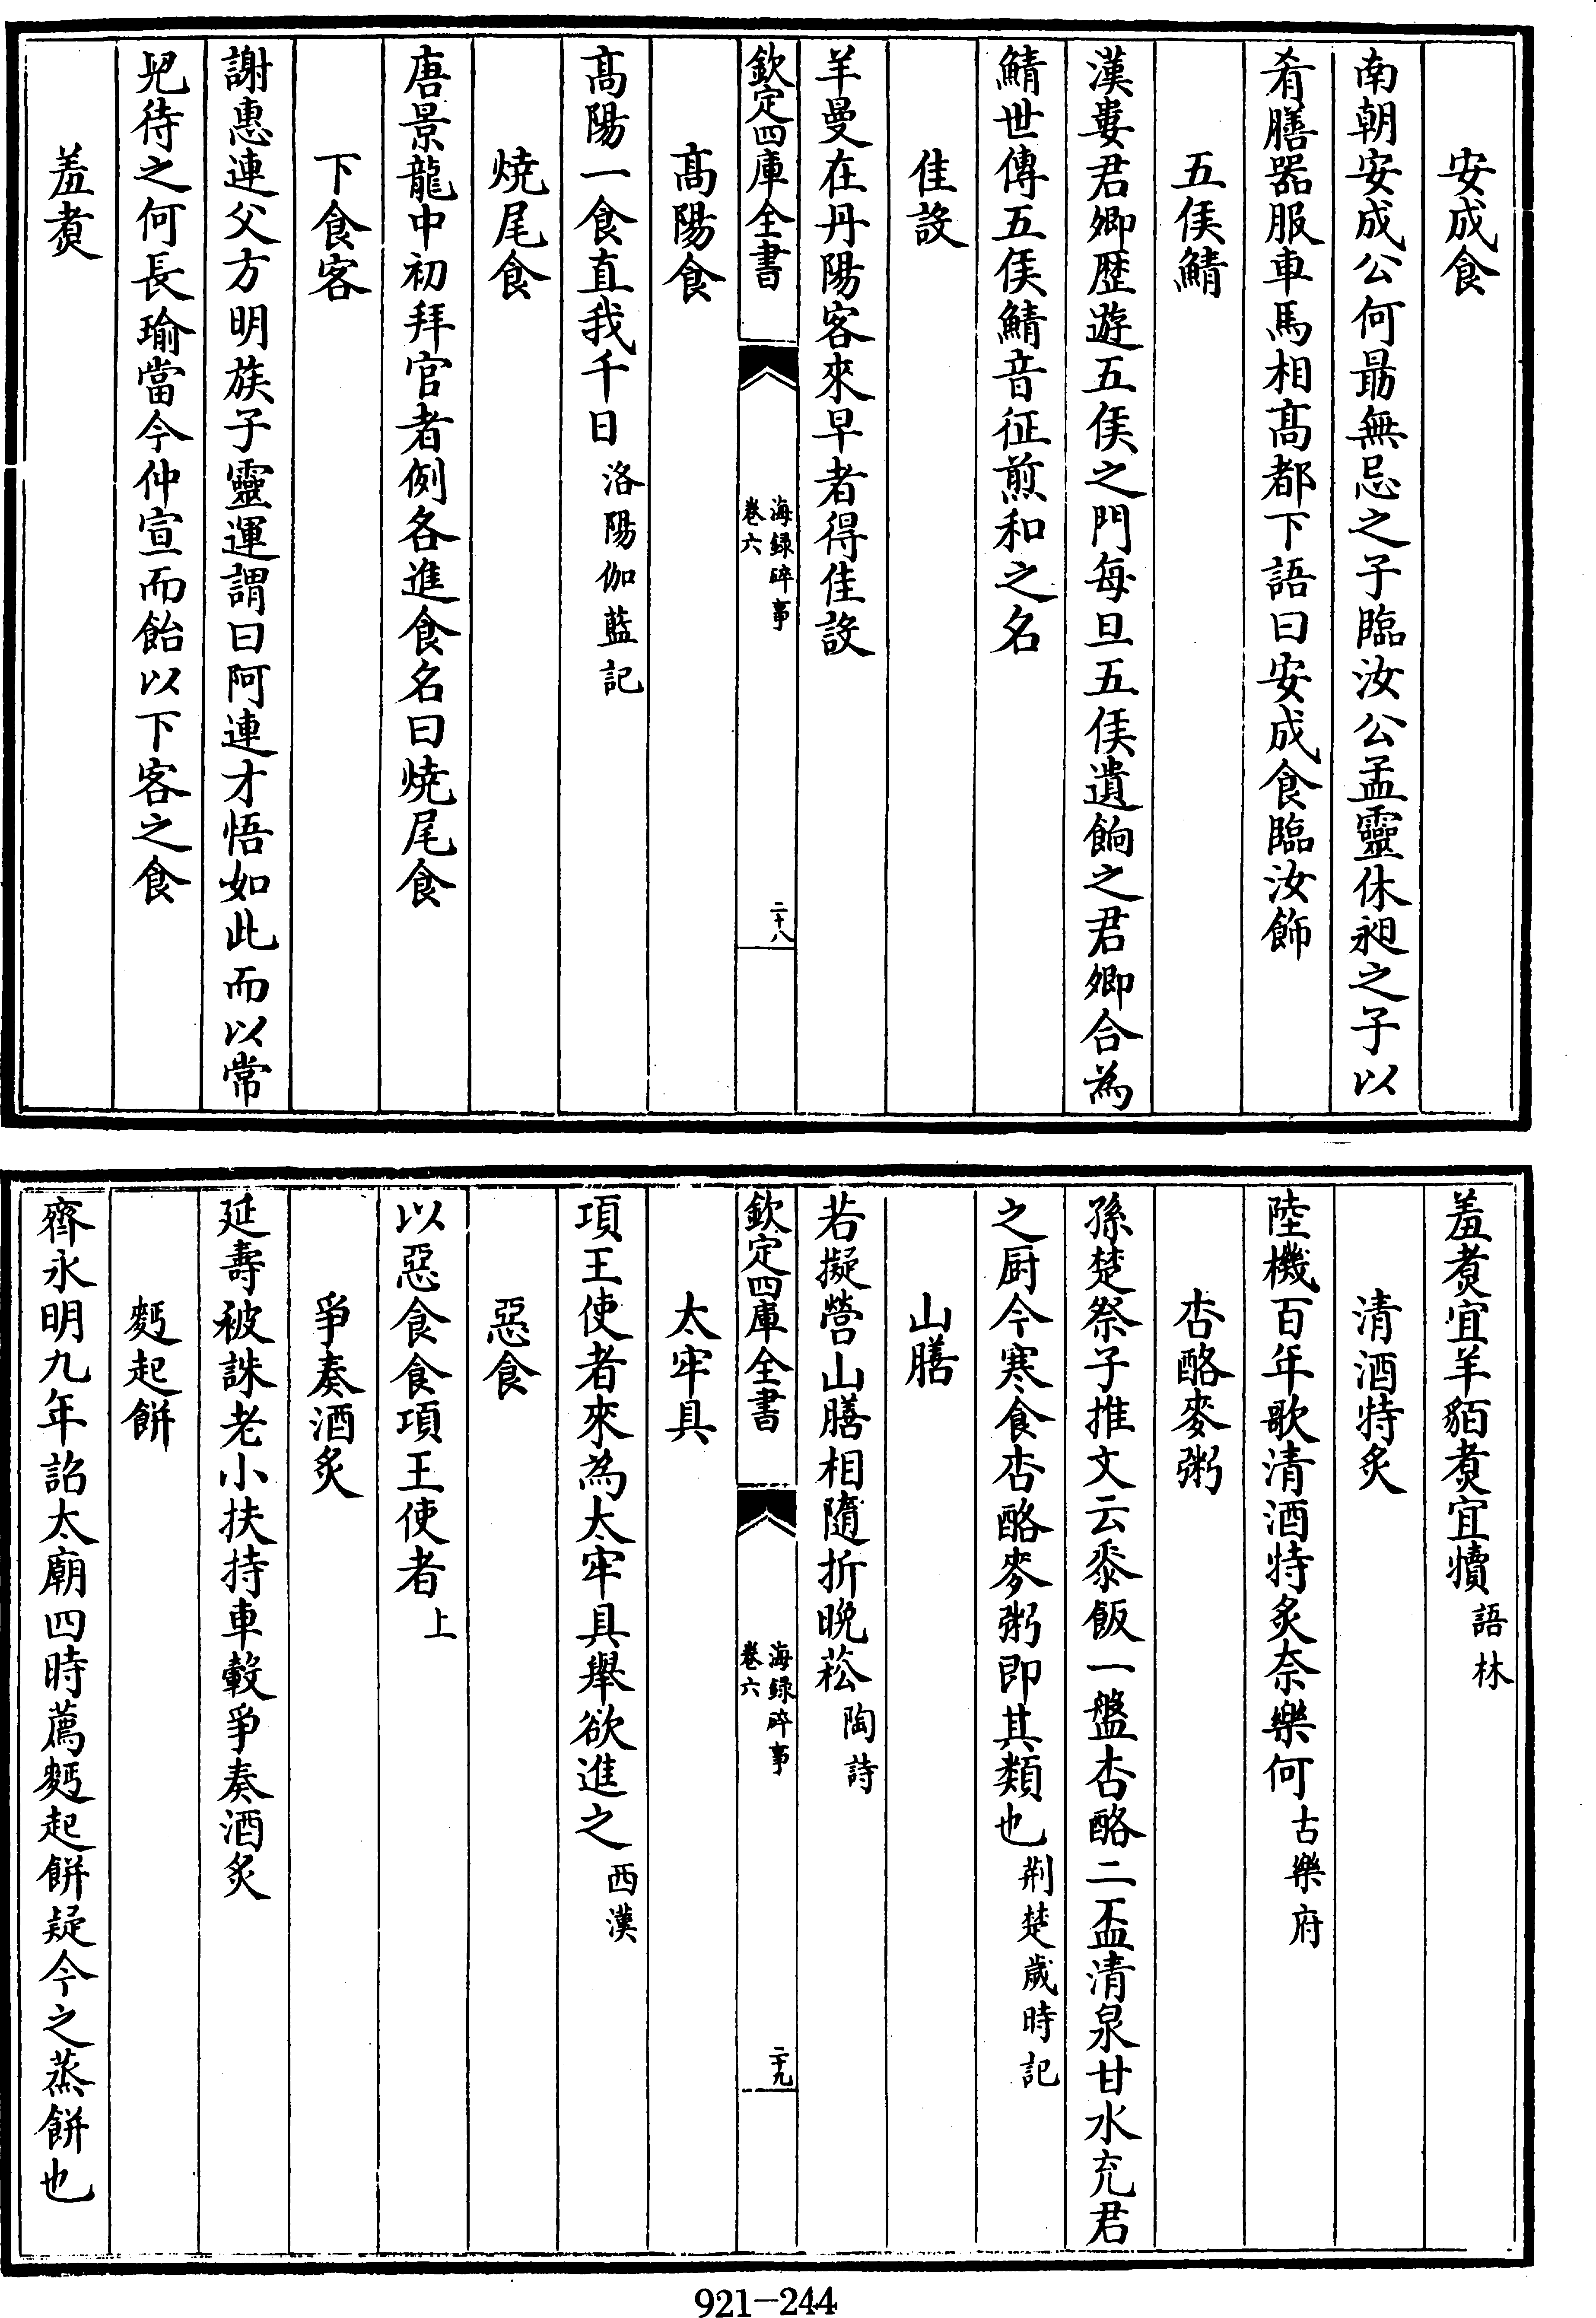 安成食
南朝安成公何朂無忌之子臨汝公孟靈休昶之子以
肴膳器服車馬相髙都下語曰安成食臨汝飾
五侯鯖
漢婁君卿歴遊五侯之門每旦五侯遺餉之君卿合為
鯖世傳五侯鯖音征煎和之名
佳設
羊曼在丹陽客來早者得佳設
欽定四庫全書
海録碎事
卷六
二十八
髙陽食
髙陽一食直我千日洛陽伽藍記
燒尾食
唐景龍中初拜官者例各進食名曰燒尾食
下食客
謝惠連父方明族子靈運謂曰阿連才悟如此而以常
兒待之何長瑜當今仲宣而飴以下客之食
羞煑
羞煑宜羊貊煑宜犢語林
清酒特炙
陸機百年歌清酒特炙奈樂何古樂府
杏酪麥粥
孫楚祭子推文云黍飯一盤杏酪二盃清泉甘水充君
之厨今寒食杏酪麥粥即其類也荆楚歲時記
山膳
若擬營山膳相隨折晚菘陶詩
欽定四庫全書
海録碎事
卷六
二十九
太牢具
項王使者來為太牢具舉欲進之西漢
惡食
以惡食食項王使者上
爭奏酒炙
延壽被誅老小扶持車轂爭奏酒炙
麫起餅
齊永明九年詔太廟四時薦麫起餅疑今之蒸餅也
921-244